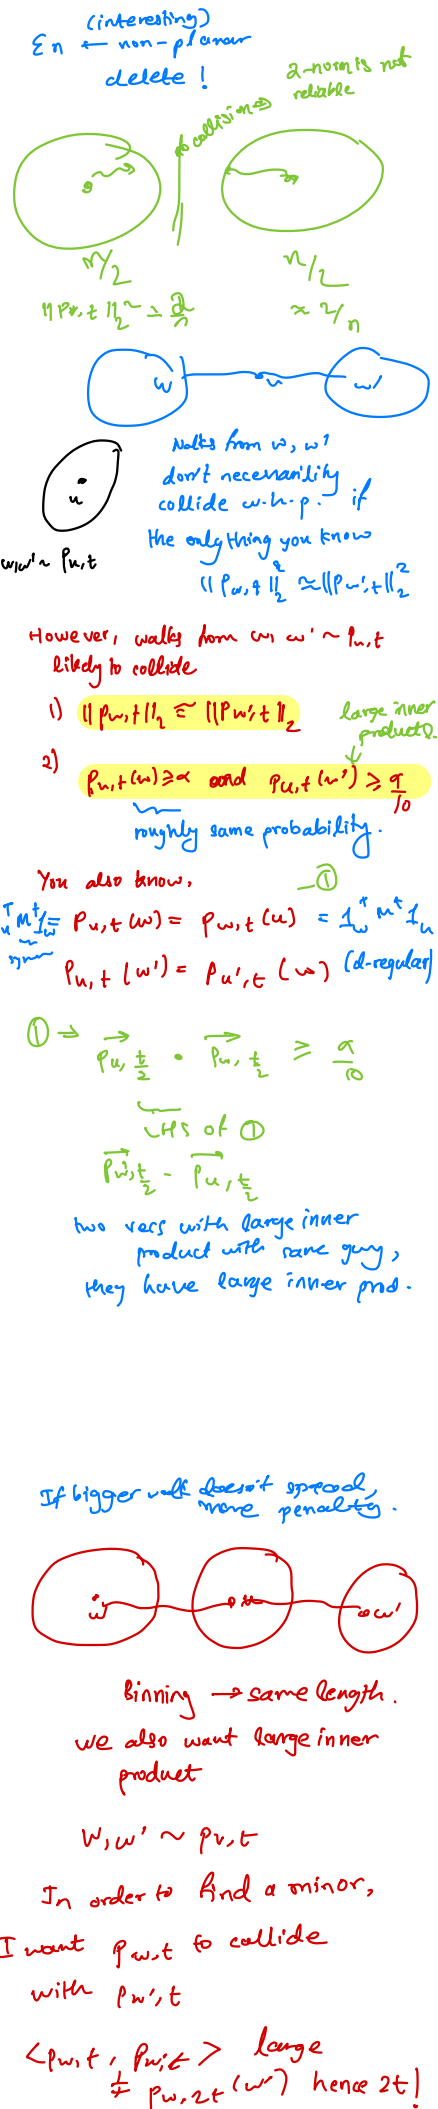 (interesting)
εn ← non-planar
delete !
collision ⇒ 2-norm is not
reliable
n/2 n/2
||Pu,t||₂² ≈ 2/n ≈ 2/n
w u w'
u
w,w' ~ Pu,t
Walks from w, w'
don't necessarility
collide w.h.p. if
the only thing you know
||Pw,t||₂² ≈ ||Pw',t||₂²
However, walks from w, w' ~ Pu,t
likely to collide
1) ||Pw,t||₂ ≈ ||Pw',t||₂
large inner
product
2) Pu,t(w) ≥ α and Pu,t(w') ≥ α/10
roughly same probability.
You also know, — ①
1ᵤᵀ Mᵗ 1w = Pu,t(w) = Pw,t(u) = 1wᵀ Mᵗ 1u
Pu,t(w') = Pu',t(w) (d-regular)
① → Pu,t/2 · Pw,t/2 ≥ α/10
LHS of ①
Pw',t/2 - Pu,t/2
two vecs with large inner
product with same guy,
they have large inner prod.
If bigger walk doesn't spread,
more penalty.
w u w'
Binning → same length.
we also want large inner
product
W, w' ~ Pv,t
In order to find a minor,
I want Pw,t to collide
with Pw',t
<Pw,t, Pw',t> large
≠ Pw,2t(w') hence 2t!